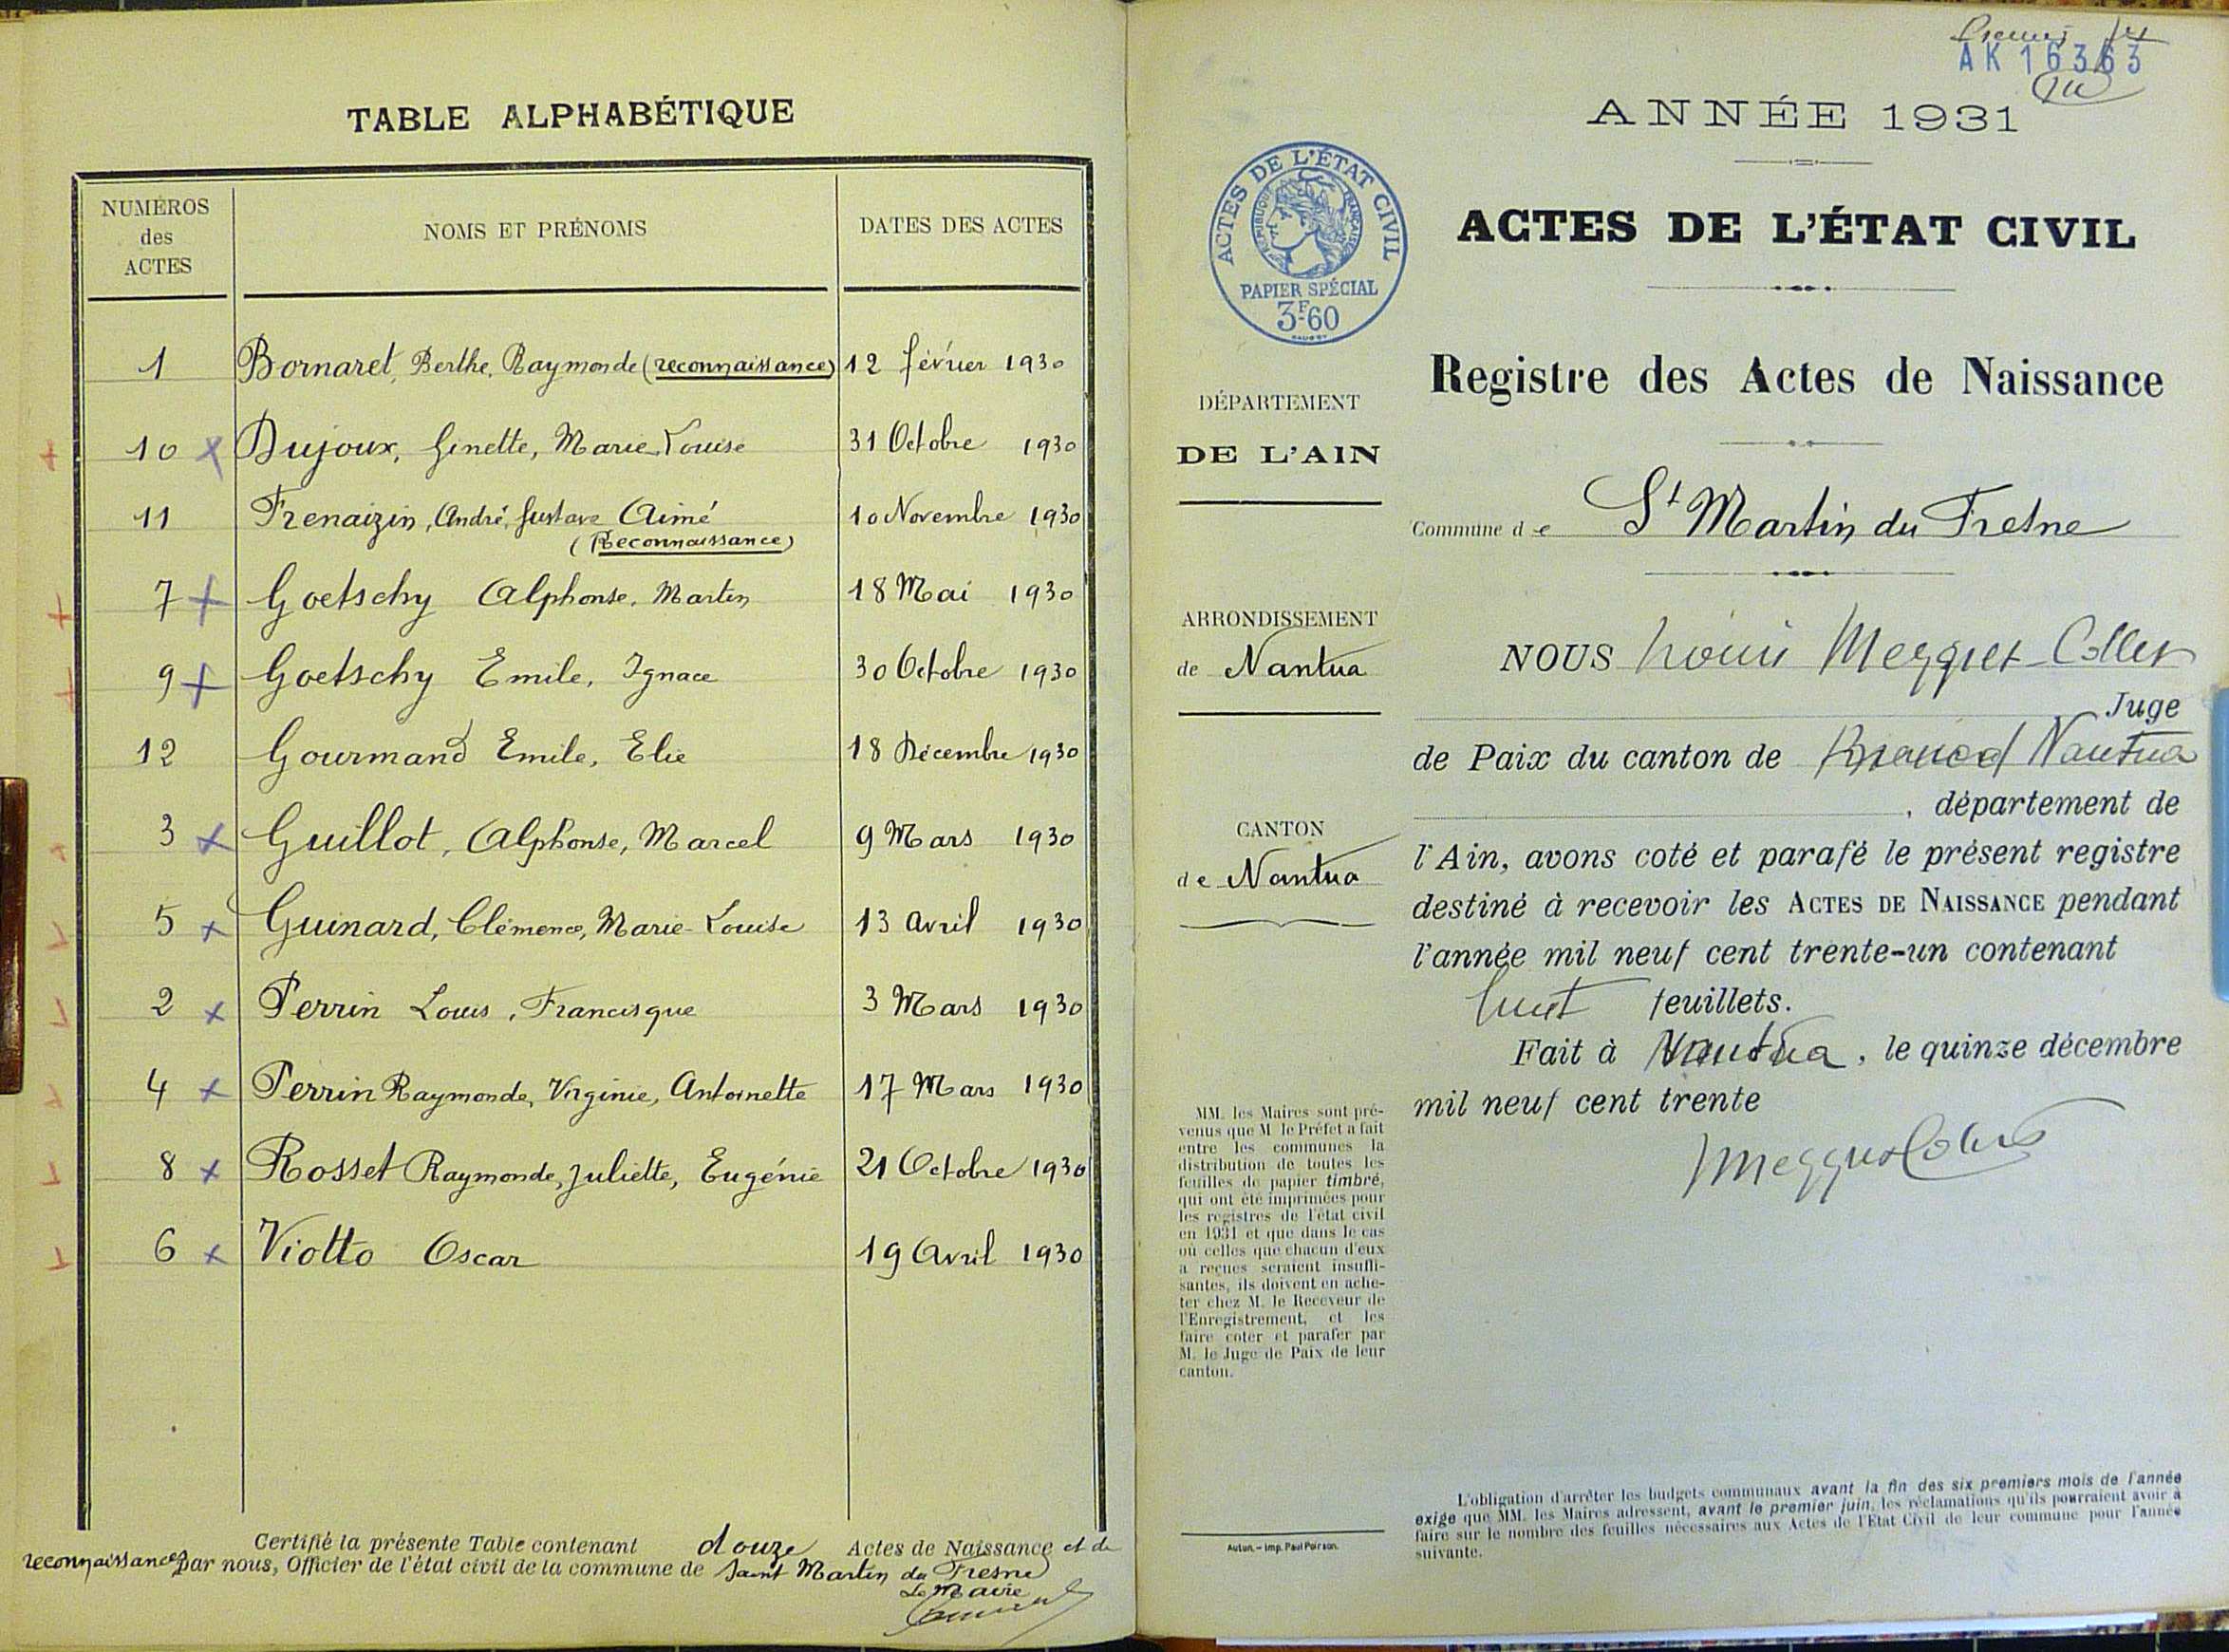 TABLE ALPHABÉTIQUE
NUMÉROS
des
ACTES
NOMS ET PRÉNOMS
DATES DES ACTES
1 Bornaret, Berthe, Raymonde (reconnaissance) 12 février 1930
10 x Dujoux, Ginette, Marie Louise 31 Octobre 1930
11 Frenaizin, André, Gustave Aimé 10 Novembre 1930
(Reconnaissance)
7 + Goetschy Alphonse, Martin 18 Mai 1930
9 + Goetschy Emile, Ignace 30 Octobre 1930
12 Gourmand Emile, Elie 18 Décembre 1930
3 x Guillot, Alphonse, Marcel 9 Mars 1930
5 x Guinard, Clémence, Marie-Louise 13 Avril 1930
2 x Perrin Louis, Francisque 3 Mars 1930
4 x Perrin Raymonde, Virginie, Antoinette 17 Mars 1930
8 x Rosset Raymonde, Juliette, Eugénie 21 Octobre 1930
6 x Viotto Oscar 19 Avril 1930
Certifié la présente Table contenant douze Actes de Naissance et de
reconnaissances par nous, Officier de l'état civil de la commune de Saint Martin du Fresne
Le Maire
AK 16363
ANNÉE 1931
ACTES DE L'ÉTAT CIVIL
RÉPUBLIQUE FRANÇAISE
PAPIER SPÉCIAL
3F-60
ACTES DE L'ÉTAT CIVIL
Registre des Actes de Naissance
DÉPARTEMENT
DE L'AIN
Commune de St Martin du Fresne
ARRONDISSEMENT
de Nantua
CANTON
de Nantua
NOUS Louis Mezquet-Collet
Juge
de Paix du canton de Brenod Nantua
, département de
l'Ain, avons coté et parafé le présent registre
destiné à recevoir les ACTES DE NAISSANCE pendant
l'année mil neuf cent trente-un contenant
huit feuillets.
Fait à Nantua, le quinze décembre
mil neuf cent trente
MM. les Maires sont pré-
venus que M le Préfet a fait
entre les communes la
distribution de toutes les
feuilles de papier timbré,
qui ont été imprimées pour
les registres de l'état civil
en 1931 et que dans le cas
où celles que chacun d'eux
a reçues seraient insuffi-
santes, ils doivent en ache-
ter chez M. le Receveur de
l'Enregistrement, et les
faire coter et parafer par
M. le Juge de Paix de leur
canton.
Autun. – Imp. Paul Poirson.
L'obligation d'arrêter les budgets communaux avant la fin des six premiers mois de l'année
exige que MM. les Maires adressent, avant le premier juin, les réclamations qu'ils pourraient avoir à
faire sur le nombre des feuilles nécessaires aux Actes de l'Etat Civil de leur commune pour l'année
suivante.